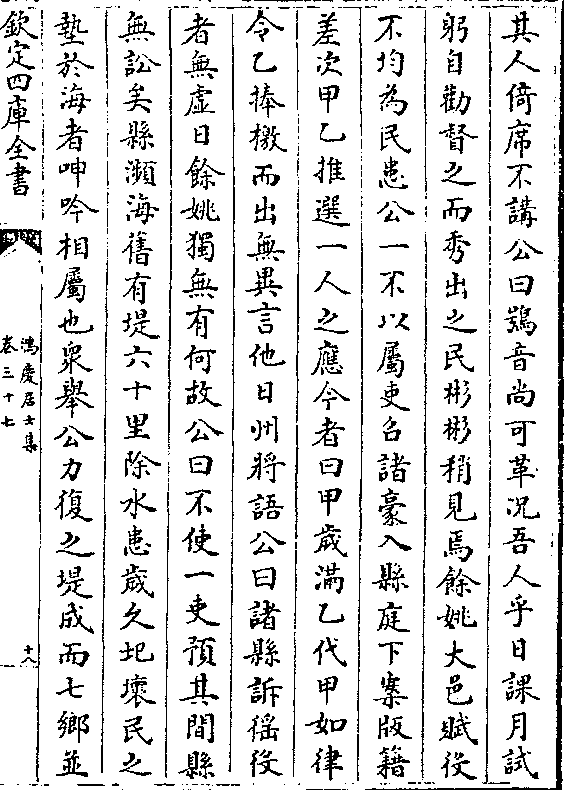 其人倚席不講公曰鴞音尚可革况吾人乎日課月試
躬自勸督之而秀出之民彬彬稍見焉餘姚大邑賦役
不均為民患公一不以屬吏召諸豪入縣庭下案版籍
差次甲乙推選一人之應令者曰甲歳滿乙代甲如律
令乙捧檄而出無異言他日州將語公曰諸縣訴徭役
者無虛日餘姚獨無有何故公曰不使一吏預其間縣
無訟矣縣瀕海舊有堤六十里除水患歳久圮壞民之
墊於海者呻吟相屬也衆舉公力復之堤成而七鄉並
欽定四庫全書
鴻慶居士集
卷三十七
十八